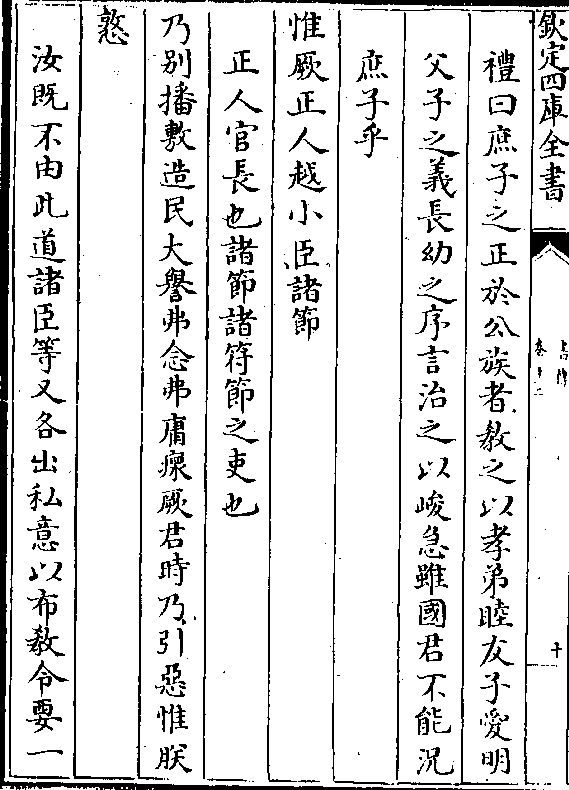 欽定四庫全書
書傳
卷十二
十
禮曰庶子之正於公族者教之以孝弟睦友子愛明
父子之義長幼之序言治之以峻急雖國君不能況
庶子乎
惟厥正人越小臣諸節
正人官長也諸節諸符節之吏也
乃别播敷造民大譽弗念弗庸瘝厥君時乃引惡惟朕
憝
汝既不由此道諸臣等又各出私意以布教令要一